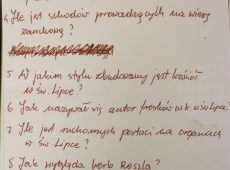 4 Ile jest schodów prowadzących na wieżę
zamkową?
5 W jakim stylu zbudowany jest kościół
w Św. Lipce?
6 Jak nazywał się autor fresków w św. Lipce?
7 Ile jest ruchomych postaci na organach
w Św. Lipce?
8 Jak wygląda herb Reszla?